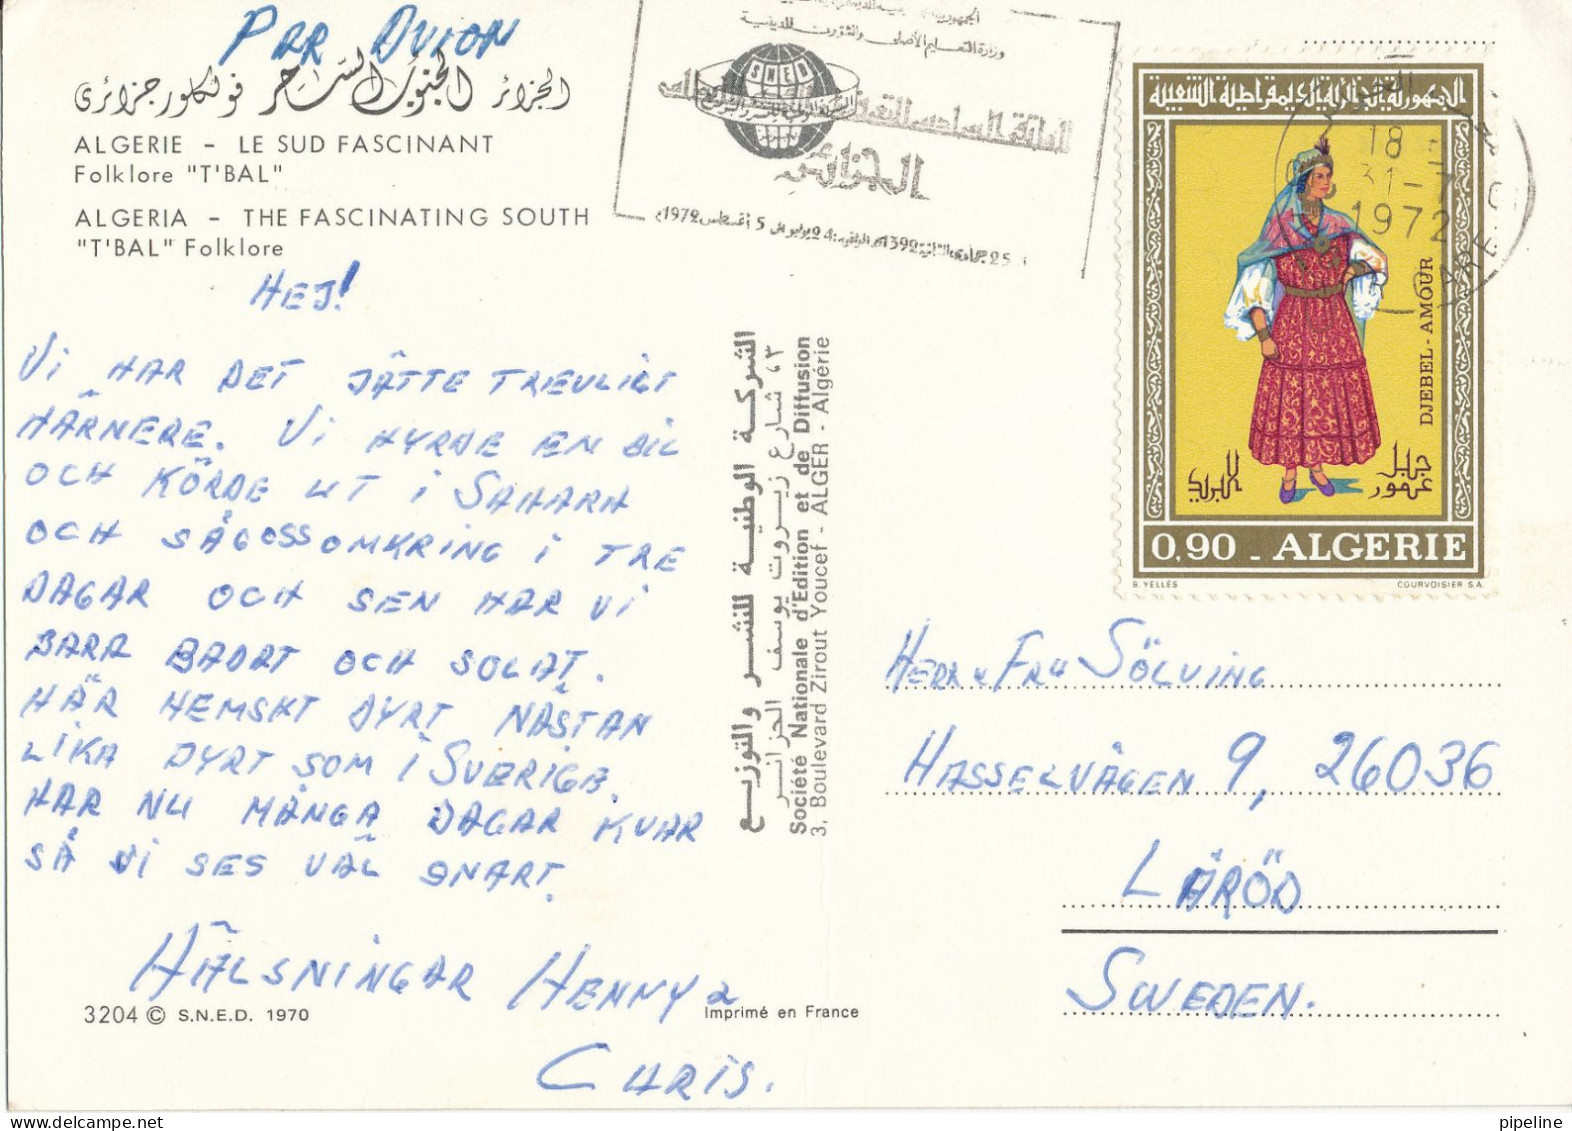 PAR AVION
الجزائر الجنوب الساحر فولكلور جزائري
ALGERIE - LE SUD FASCINANT
Folklore "T'BAL"
ALGERIA - THE FASCINATING SOUTH
"T'BAL" Folklore
HEJ!
VI HAR DET JÄTTE TREVLIGT
HÄRNERE. VI HYRDE EN BIL
OCH KÖRDE UT I SAHARA
OCH SÅG OSS OMKRING I TRE
DAGAR OCH SEN HAR VI
BARA BADAT OCH SOLAT.
HÄR HEMSKT DYRT NÄSTAN
LIKA DYRT SOM I SVERIGE.
HAR NU MÅNGA DAGAR KVAR
SÅ VI SES VÄL SNART.
HÄLSNINGAR HENNY &
CHRIS.
3204 © S.N.E.D. 1970
Imprimé en France
الشركة الوطنية للنشر والتوزيع
٣ ، شارع زيروت يوسف الجزائر
Société Nationale d'Edition et de Diffusion
3, Boulevard Zirout Youcef - ALGER - Algérie
وزارة التعليم الأصلي والشؤون الدينية
SNED
الجزائر
25 جمادى الثانية 1392هـ الموافق: 24 يوليو الى 5 أغسطس 1972م
18
31-7
1972
الجمهورية الجزائرية الديمقراطية الشعبية
DJEBEL-AMOUR
جبل عمور
البريد
0,90 - ALGERIE
B. YELLÈS
COURVOISIER S.A.
HERR & FRU SÖLVING
HASSELVÄGEN 9, 26036
LARÖD
SWEDEN.
pipeline